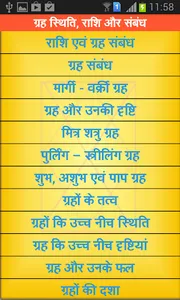 11:58
ग्रह स्थिति, राशि और संबंध
राशि एवं ग्रह संबंध
ग्रह संबंध
मार्गी - वक्री ग्रह
ग्रह और उनकी दृष्टि
मित्र शत्रु ग्रह
पुर्लिंग – स्त्रीलिंग ग्रह
शुभ, अशुभ एवं पाप ग्रह
ग्रहों के तत्व
ग्रहों कि उच्च नीच स्थिति
ग्रह कि उच्च नीच दृष्टियां
ग्रह और उनके फल
ग्रहों की दशा